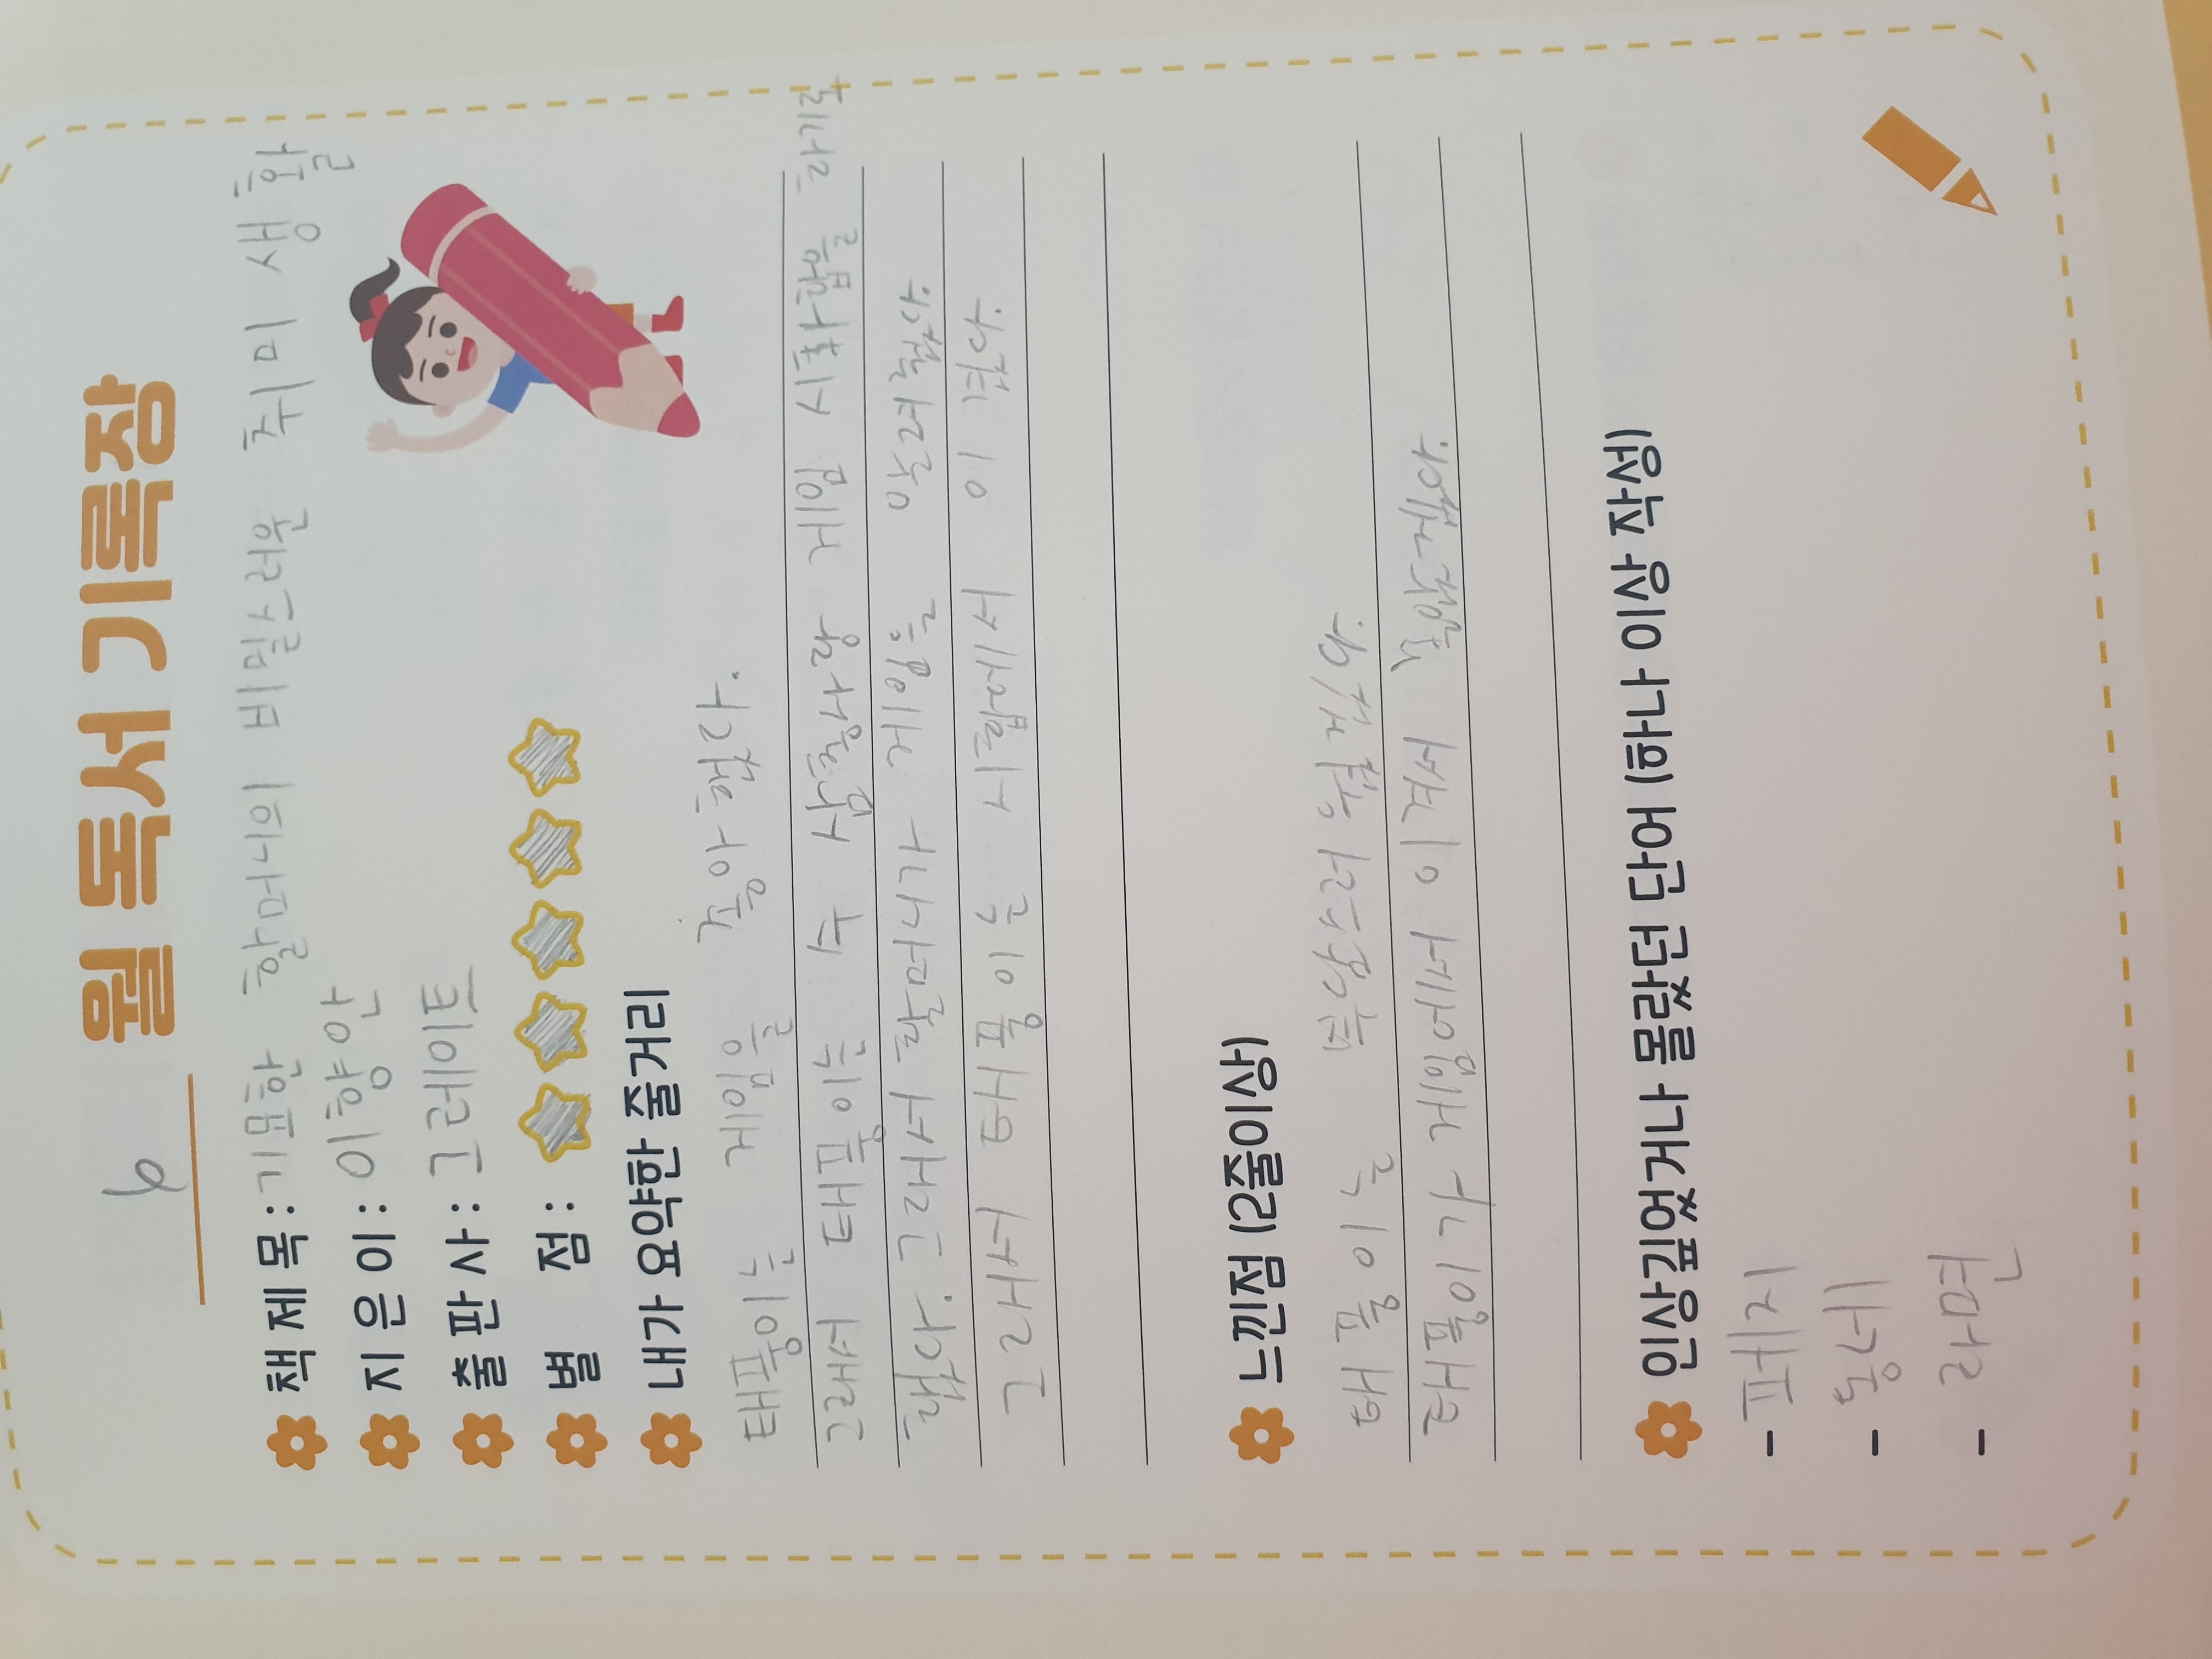 6 월 독서 기록장
책 제 목 : 기묘한 할머니의 비밀스러운 취미 생활
지 은 이 : 이향안
출 판 사 : 그레이트
별 점 :
내가 요약한 줄거리
태풍이는 게임을 좋아했다.
그래서 태풍이는 수 삼충사랑 게임 시합을 하기로
했다. 그래서 할머니가 게임을 알려줬다.
그래서 태풍이는 시합에서 이겼다.
느낀점 (2줄이상)
태풍이는 부담스러웠겠다.
태풍이가 게임에서 이겨서 좋았겠다.
인상깊었거나 몰랐던 단어 (하나 이상 작성)
- 페지
- 동네
- 라면